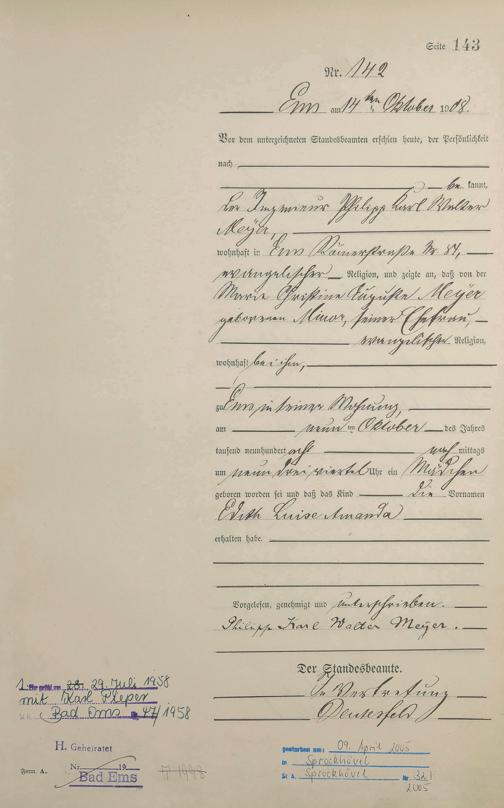 Seite 143
Nr. 142
Ems am 14ten Oktober 1908.
Vor dem unterzeichneten Standesbeamten erschien heute, der Persönlichkeit
nach
be kannt,
der Ingenieur Philipp Karl Walter
Meyer,
wohnhaft in Ems Römerstraße Nr 81,
evangelischer Religion, und zeigte an, daß von der
Marie Christine Auguste Meyer
geborenen Minor, seiner Ehefrau,
evangelischer Religion,
wohnhaft bei ihm,
zu Ems in seiner Wohnung,
am neunten Oktober des Jahres
tausend neunhundert acht nach mittags
um neun dreiviertel Uhr ein Mädchen
geboren worden sei und daß das Kind die Vornamen
Edith Luise Amanda
erhalten habe.
Vorgelesen, genehmigt und unterschrieben.
Philipp Karl Walter Meyer.
Der Standesbeamte.
In Vertretung
1. Eheschl. am 29. Juli 1958
mit Karl Pieper
Bad Ems Nr. 47/1958
H. Geheiratet
Nr. 19
Bad Ems
Form. A.
gestorben am: 09. April 2005
in Sprockhövel
St. A. Sprockhövel Nr. 32/
2005